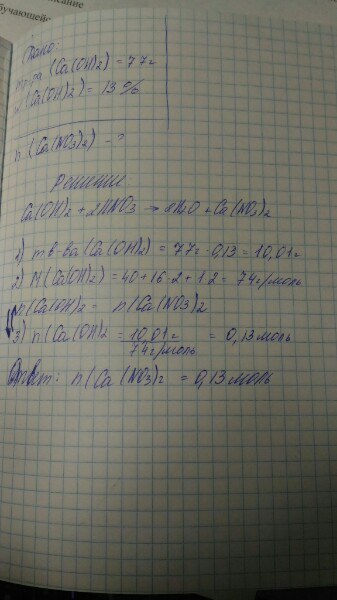 обучающейс
Дано:
m р-ра (Ca(OH)2) = 77г
w (Ca(OH)2) = 13 %
n (Ca(NO3)2) - ?
Решение:
Ca(OH)2 + 2HNO3 → 2H2O + Ca(NO3)2
1) m в-ва (Ca(OH)2) = 77г · 0,13 = 10,01г
2) M (Ca(OH)2) = 40 + 16·2 + 1·2 = 74г/моль
n(Ca(OH)2 = n(Ca(NO3)2
3) n(Ca(OH)2 = 10,01г / 74г/моль = 0,13моль
Ответ: n(Ca(NO3)2 = 0,13моль